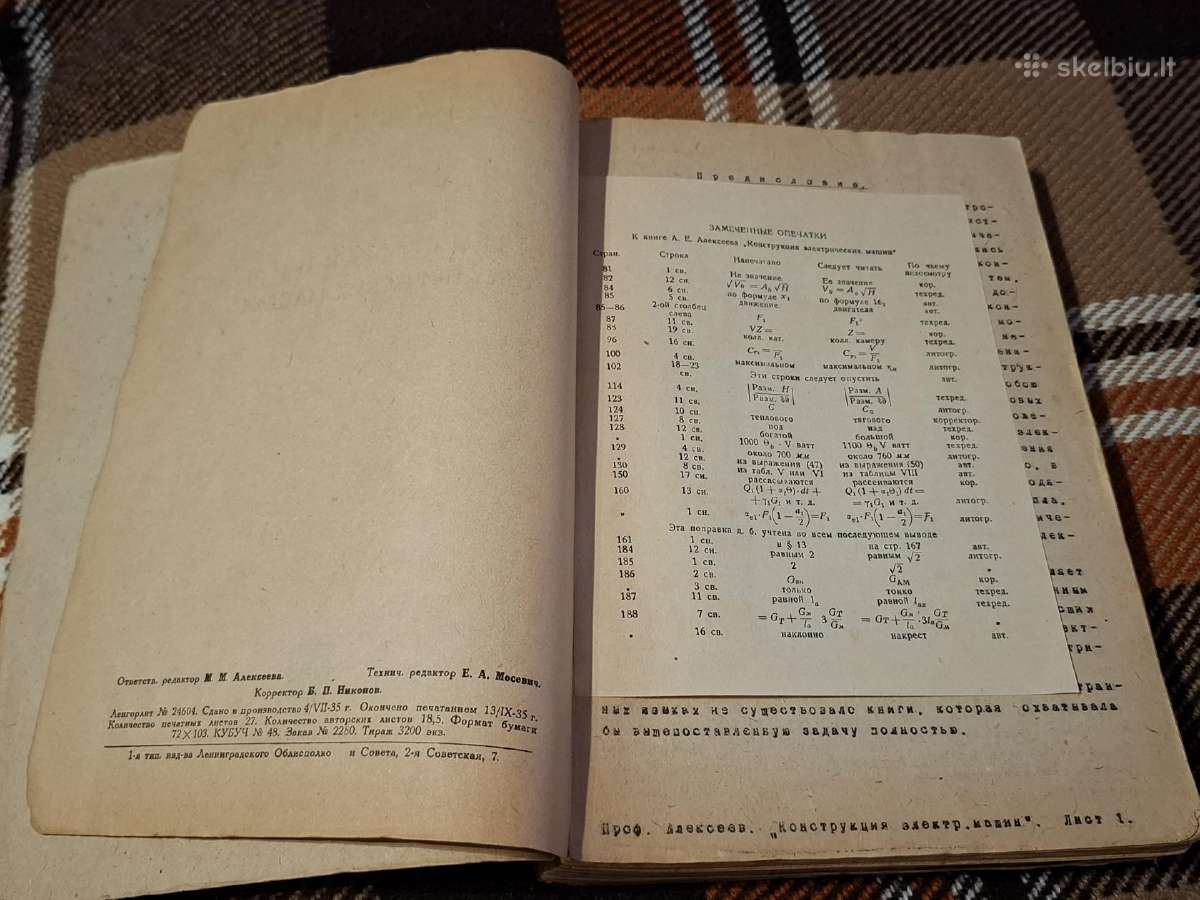 skelbiu.lt
Ответств. редактор М. М. Алексеева. Технич. редактор Е. А. Мосевич.
Корректор Б. П. Никонов.
Ленгорлит № 24604. Сдано в производство 4/VII-35 г. Окончено печатанием 13/IX-35 г.
Количество печатных листов 27. Количество авторских листов 18,5. Формат бумаги
72×103. КУБУЧ № 48. Заказ № 2280. Тираж 3200 экз.
1-я тип. изд-ва Ленинградского Облисполко и Совета, 2-я Советская, 7.
Предисловие.
ЗАМЕЧЕННЫЕ ОПЕЧАТКИ
К книге А. Е. Алексеева „Конструкция электрических машин“
Стран. Строка Напечатано Следует читать По чьему недосмотру
81 1 св. Не значение Ее значение кор.
82 12 сн. √V_b = A_b √H V_b = A_o √H техред.
84 6 сн. по формуле x₁ по формуле 16₁ авт.
85 5 сн. движение двигателя авт.
85—86 2-ой столбец слева F₁ F₁· техред.
87 11 св. VZ = Z = кор.
19 св. колл. кат. колл. камеру техред.
96 16 сн.
100 4 св. литогр.
102 18—23 св. максимальном максимальном литогр.
Эти строки следует опустить авт.
114 4 сн. Разм. H Разм. A техред.
123 11 св. G литогр.
124 10 сн. теплового тягового корректор.
127 8 св. под над техред.
128 12 св. богатой большой кор.
„ 1 сн. 1000 Θ_b · V ватт 1100 Θ_b V ватт техред.
129 4 св. около 700 мм около 760 мм литогр.
„ 12 св. из выражения (47) из выражения (50) авт.
130 8 св. из табл. V или VI из таблицы VIII авт.
150 17 сн. рассасываются рассеиваются кор.
160 13 сн. Q₁(1 + α₁Θ)·dt + + γ₁G₁ и т. д. Q₁(1 + α₁Θ₁) dt = = γ₁G₁ и т. д. литогр.
„ 1 сн. α_в1·F₁(1 − a₁/2) = F₁ α_в1·F₁(1 − a₁/2) = F̄₁ литогр.
Эта поправка д. б. учтена во всем последующем выводе
161 1 сн. в § 13 на стр. 167 авт.
184 12 сн. равным 2 равным √2 литогр.
185 1 св. 2 √2 „
186 2 св. G_вн G_AM кор.
„ 3 св. только тонко техред.
187 11 св. равной l_a равной l_ая техред.
188 7 св. = G_T + G_м/l_a 3 G_T/G_м = G_T + G_м/l_a ·3l_a G_T/G_м „
„ 16 св. наклонно накрест авт.
стран-
ных языках не существовало книги, которая охватывала
бы вышепоставленную задачу полностью.
Проф. Алексеев. „Конструкция электр.машин“. Лист 1.